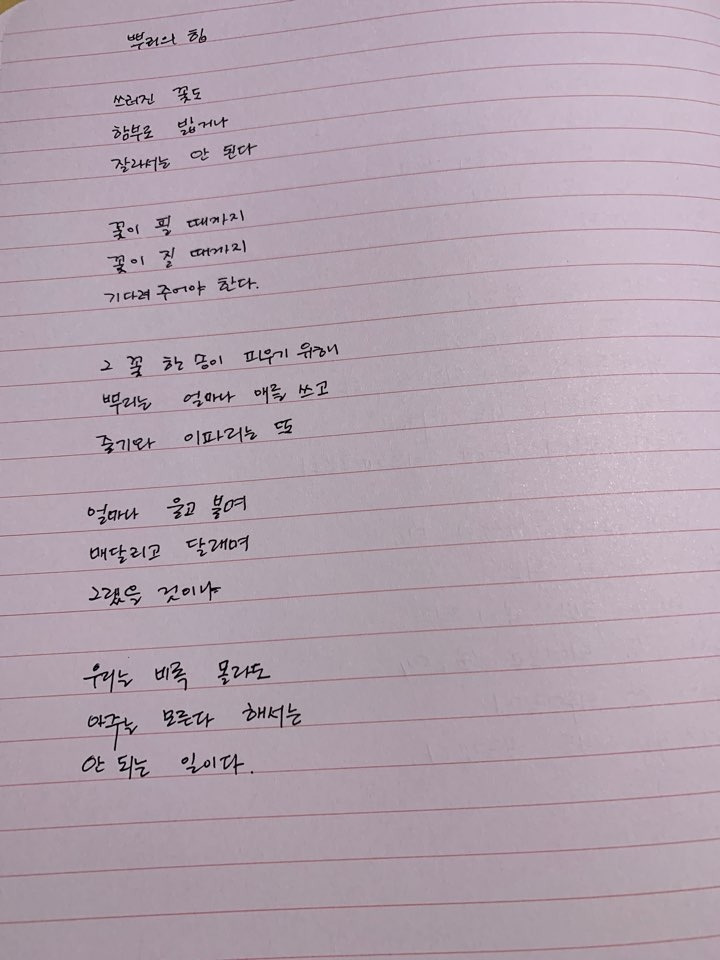 뿌리의 힘
쓰러진 꽃도
함부로 밟거나
잘라서는 안 된다
꽃이 필 때까지
꽃이 질 때까지
기다려 주어야 한다.
그 꽃 한 송이 피우기 위해
뿌리는 얼마나 애를 쓰고
줄기와 이파리는 또
얼마나 울고 불며
매달리고 달래며
그랬을 것이냐
우리는 비록 몰라도
아주는 모른다 해서는
안 되는 일이다.